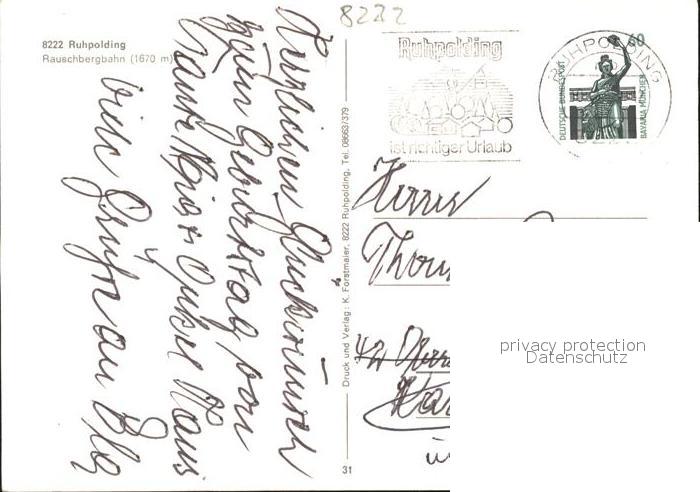 8222
8222 Ruhpolding
Rauschbergbahn (1670 m)
Herzlichen Glückwunsch
zum Geburtstag von
Tante Kris + Onkel Hans
viele Grüße an
Druck und Verlag: K. Forstmaier, 8222 Ruhpolding, Tel. 08663/379
31
Ruhpolding
ist richtiger Urlaub
RUHPOLDING
60
DEUTSCHE BUNDESPOST
BAVARIA MÜNCHEN
Herrn
42 Ober
privacy protection
Datenschutz